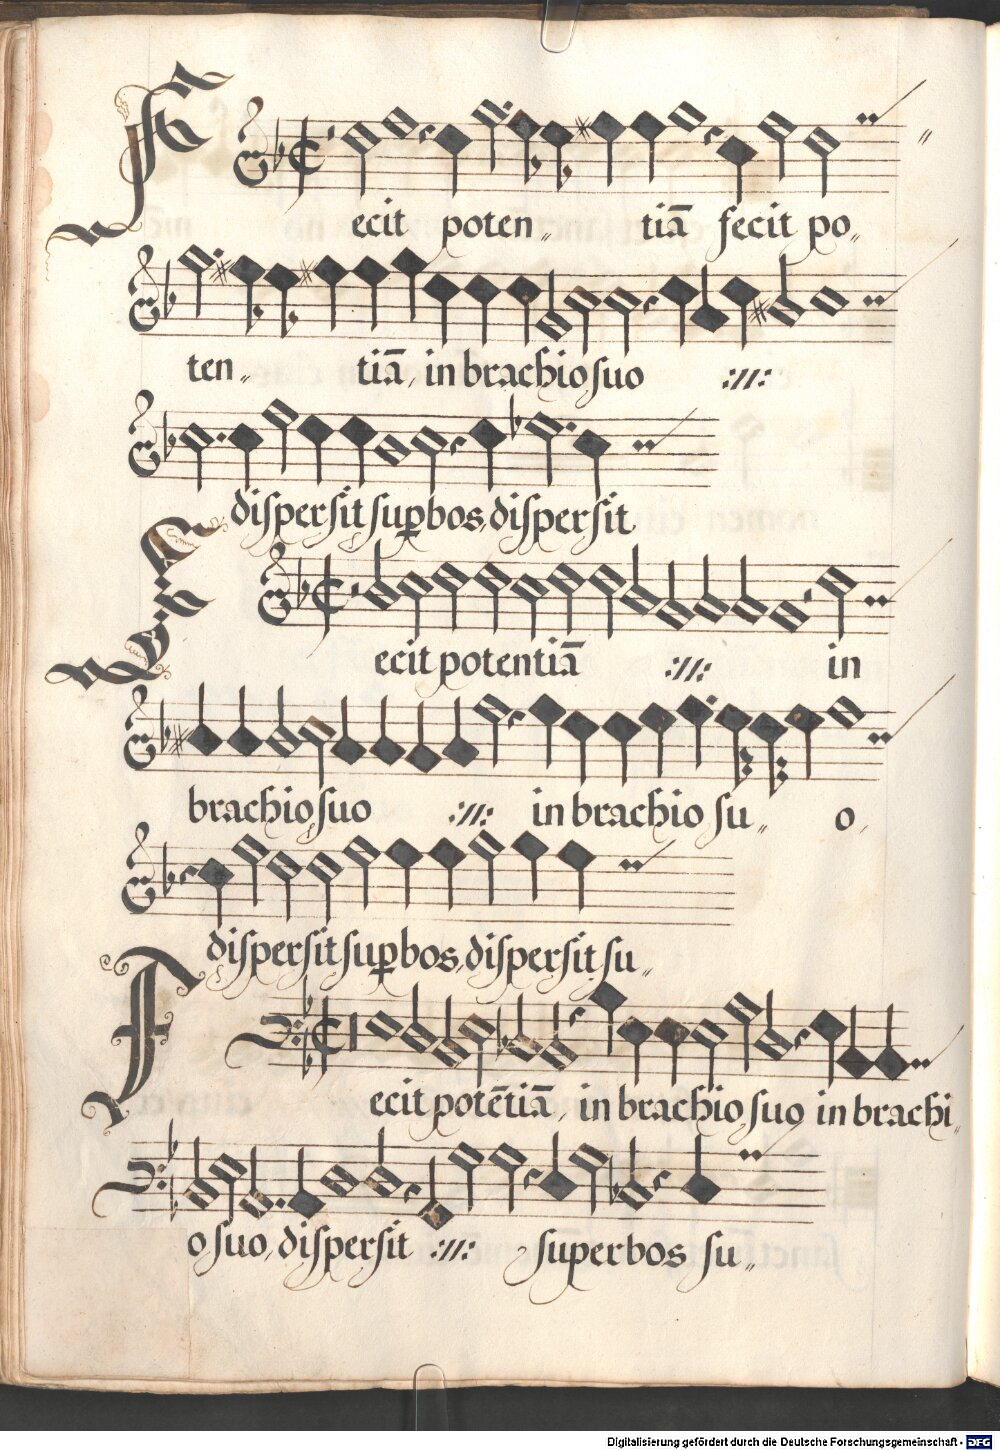 Fecit poten= tiā fecit po=
ten= tiā, in brachio suo :||:
dispersit supbos, dispersit
Fecit potentiā :||: in
brachio suo :||: in brachio su= o,
dispersit supbos, dispersit su=
Fecit potētiā, in brachio suo in brachi=
o suo, dispersit :||: superbos su=
Digitalisierung gefördert durch die Deutsche Forschungsgemeinschaft - DFG